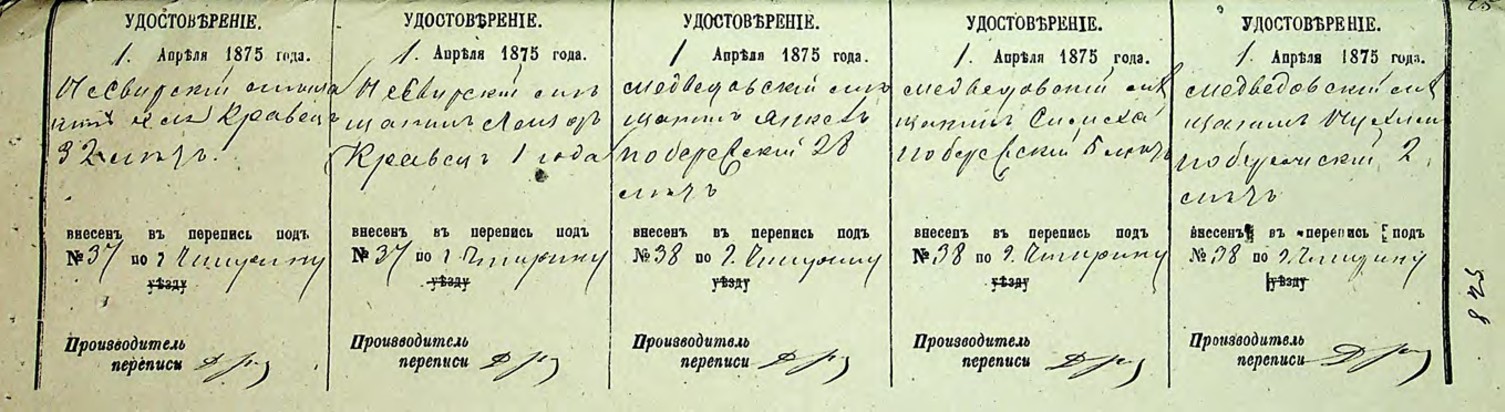 УДОСТОВѢРЕНІЕ.
1. Апрѣля 1875 года.
Несвирскій мѣща
нинъ Кравецъ
32 лѣтъ.
внесенъ въ перепись подъ
№ 37 по г Чигирину
уѣзду
Производитель
переписи
УДОСТОВѢРЕНІЕ.
1. Апрѣля 1875 года.
Несвирскій мѣ
щанинъ Лейзоръ
Кравецъ 1 года
внесенъ въ перепись подъ
№ 37 по г. Чигирину
уѣзду
Производитель
переписи
УДОСТОВѢРЕНІЕ.
1 Апрѣля 1875 года.
Медведовскій мѣ
щанинъ Янкель
Поберевскій 28
лѣтъ
внесенъ въ перепись подъ
№ 38 по г. Чигирину
уѣзду
Производитель
переписи
УДОСТОВѢРЕНІЕ.
1. Апрѣля 1875 года.
Медведовскій мѣ
щанинъ Симха
Поберевскій 5 лѣтъ
внесенъ въ перепись подъ
№ 38 по г. Чигирину
уѣзду
Производитель
переписи
УДОСТОВѢРЕНІЕ.
1 Апрѣля 1875 года.
Медведовскій мѣ
щанинъ Нухим
Поберевский 2
лѣтъ
внесенъ въ перепись подъ
№ 38 по г. Чигирину
уѣзду
Производитель
переписи